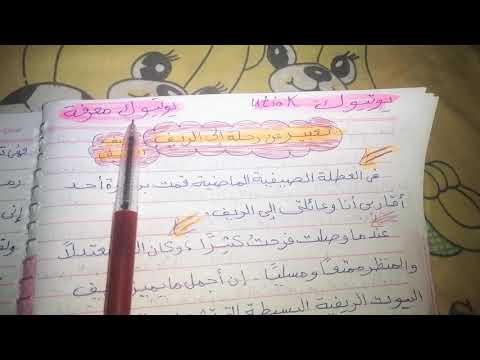 يوتيوك utiok يوتيوك معرفة
تعبير عن رحلة إلى الريف
في العطلة الصيفية الماضية قمت أحد
أقاربي أنا وعائلتي إلى الريف.
عندما وصلت فرحت كثيرًا، وكان معتدلًا
والمنظر ممتعًا ومسليًا.. إن أجمل ما يميز
البيوت الريفية البسيطة